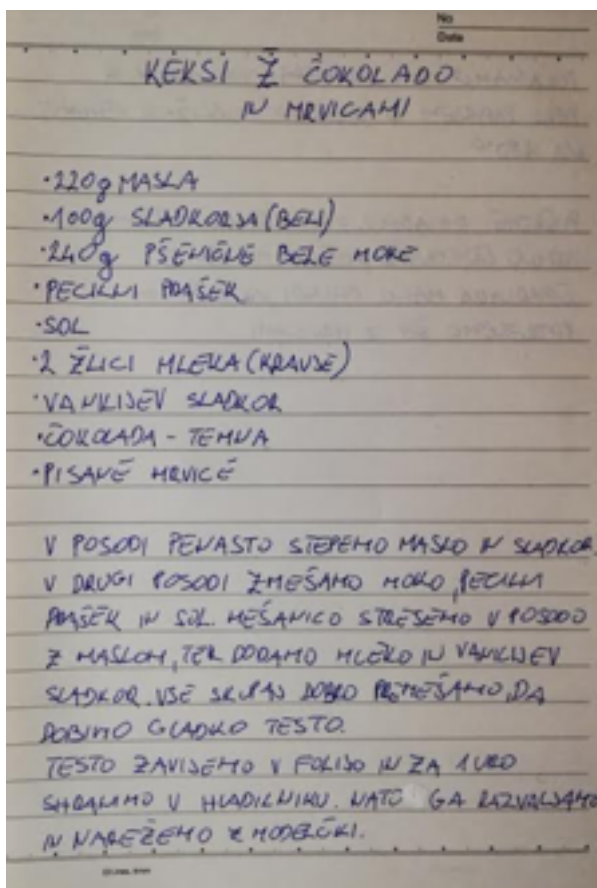 No
Date
KEKSI Ž ČOKOLADO
IN MRVICAMI
·220g MASLA
·100g SLADKORJA (BELI)
·240g PŠENIČNE BELE MOKE
·PECILNI PRAŠEK
·SOL
·2 ŽLICI MLEKA (KRAVJE)
·VANILIJEV SLADKOR
·ČOKOLADA - TEMNA
·PISANE MRVICE
V POSODI PENASTO STEPEMO MASLO IN SLADKOR.
V DRUGI POSODI ZMEŠAMO MOKO, PECILNI
PRAŠEK IN SOL. MEŠANICO STRESEMO V POSODO
Z MASLOM, TER DODAMO MLEKO IN VANILIJEV
SLADKOR. VSE SKUPAJ DOBRO PREMEŠAMO, DA
DOBIMO GLADKO TESTO.
TESTO ZAVIJEMO V FOLIJO IN ZA 1 URO
SHRANIMO V HLADILNIKU. NATO GA RAZVALJAMO
IN NAREŽEMO Z MODELČKI.